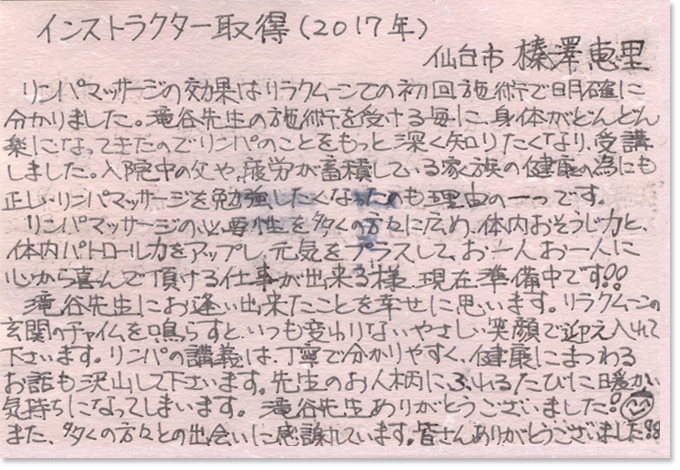 インストラクター取得(2017年)
仙台市 榛澤恵里
リンパマッサージの効果はリラクムーンでの初回施術で明確に
分かりました。滝谷先生の施術を受ける毎に、身体がどんどん
楽になってきたのでリンパのことをもっと深く知りたくなり、受講
しました。入院中の父や、疲労が蓄積している家族の健康の為にも
正しいリンパマッサージを勉強したくなったのも理由の一つです。
リンパマッサージの必要性を多くの方々に広め、体内おそうじ力と、
体内パトロール力をアップし、元気をプラスして、お一人お一人に
心から喜んで頂ける仕事が出来る様、現在準備中です!!
滝谷先生にお逢い出来たことを幸せに思います。リラクムーンの
玄関のチャイムを鳴らすと、いつも変わりないやさしい笑顔で迎え入れて
下さいます。リンパの講義は、丁寧で分かりやすく、健康にまつわる
お話も沢山して下さいます。先生のお人柄に、ふれるたびに暖かい
気持ちになってしまいます。滝谷先生ありがとうございました!
また、多くの方々との出会いに感謝しています。皆さんありがとうございました!!